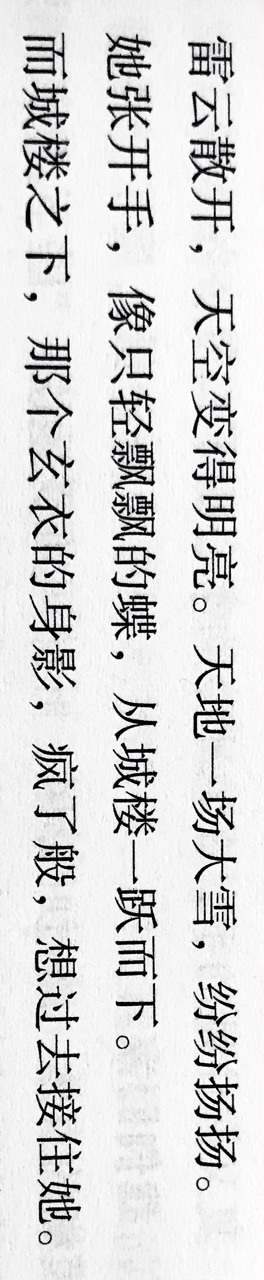 雷云散开，天空变得明亮。天地一场大雪，纷纷扬扬。
她张开手，像只轻飘飘的蝶，从城楼一跃而下。
而城楼之下，那个玄衣的身影，疯了般，想过去接住她。